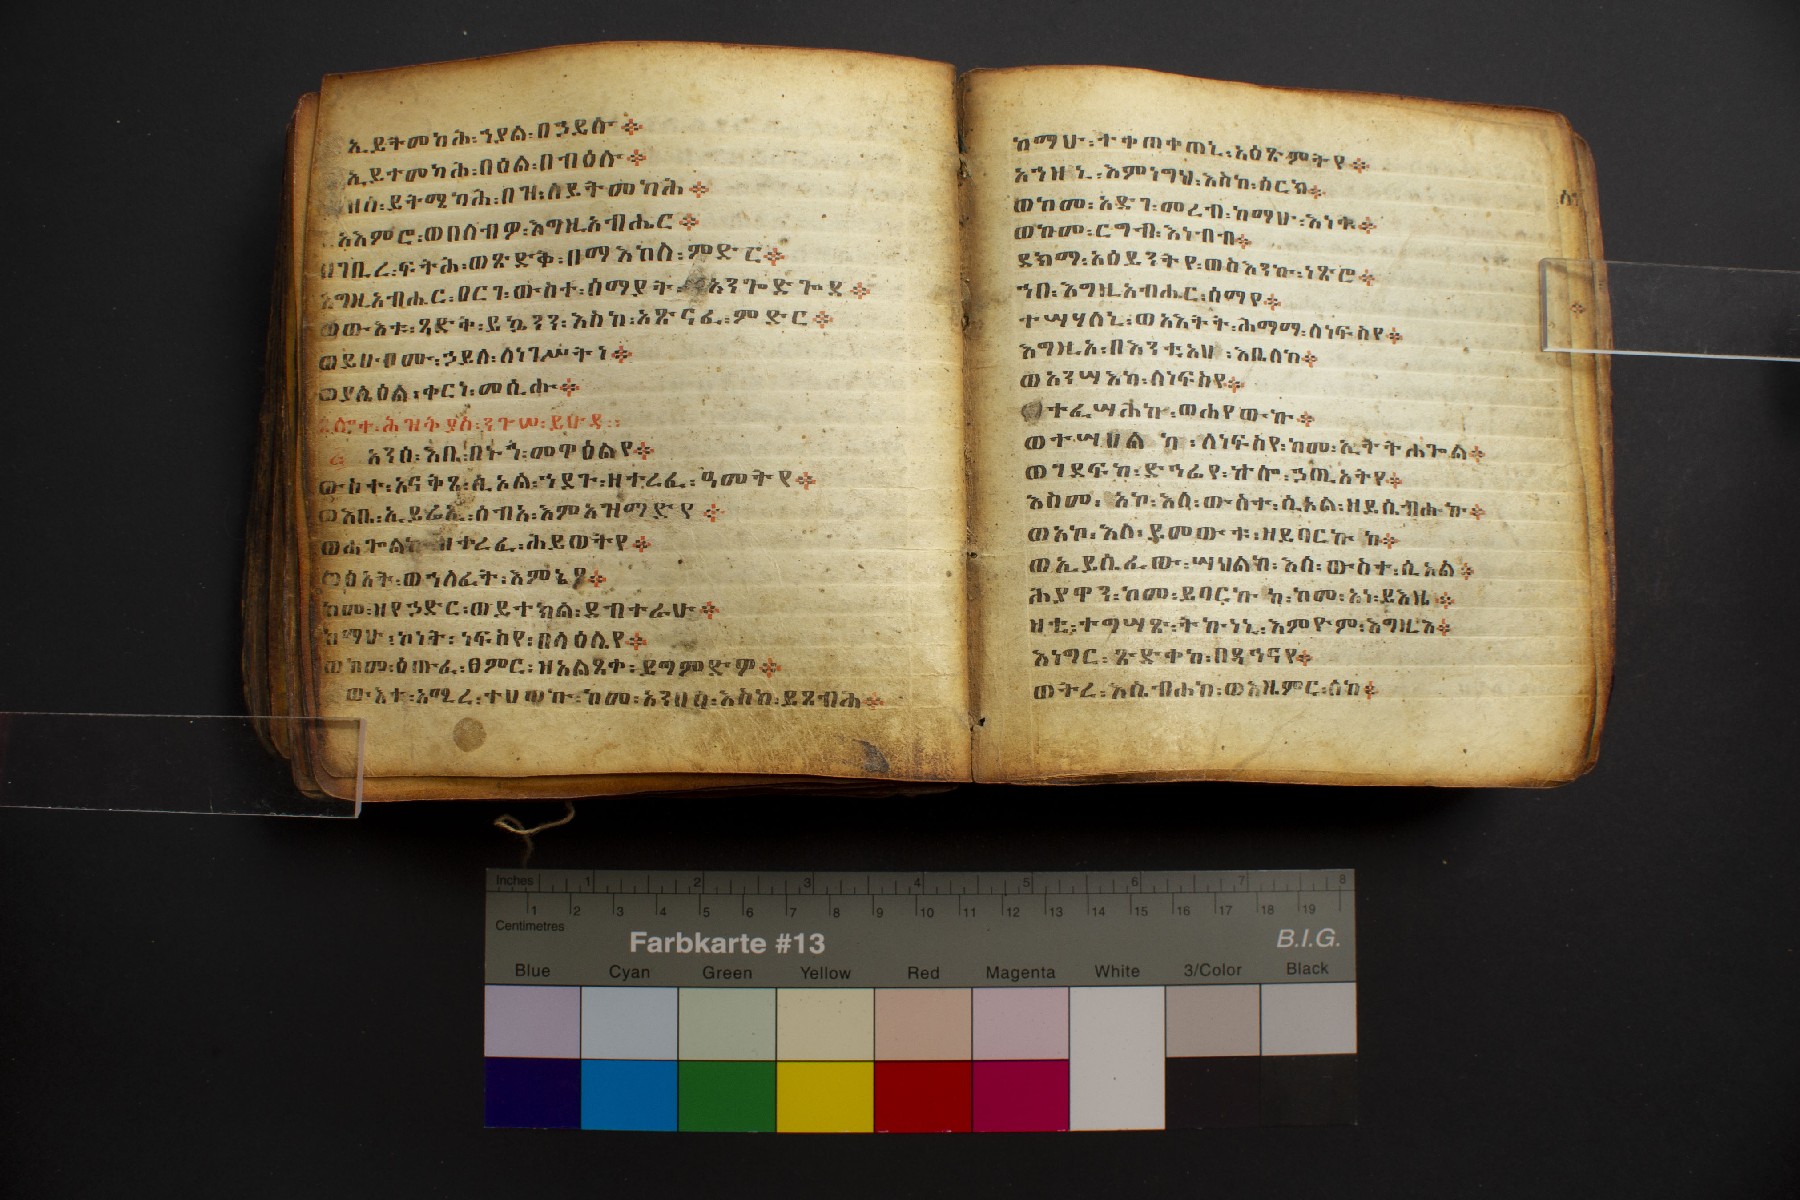 ኢይትመካሕ፡ኀያል፡በኃይሉ፨
ኢይተመካሕ፡በዕል፡በብዕሉ፨
ዘሰ፡ይትሜካሕ፡በዝ፡ለይትመካሕ፨
አእምሮ፡ወበሰብዎ፡እግዚአብሔር፨
በገቢረ፡ፍትሕ፡ወጽድቅ፡በማእከለ፡ምድር፨
እግዚአብሔር፡ዐርገ፡ውስተ፡ሰማያት፡አንጐድጐደ፨
ወውእቱ፡ጻድቅ፡ይኴንን፡እስከ፡አጽናፈ፡ምድር፨
ወይሁቦሙ፡ኃይለ፡ለነገሥትነ፨
ወያሌዕል፡ቀርነ፡መሲሑ፨
ጸሎተ፡ሕዝቅያስ፡ንጉሠ፡ይሁዳ።
አንሰ፡እቤ፡በኑኀ፡መዋዕልየ፨
ውስተ፡አናቅጸ፡ሲኦል፡ኀደጉ፡ዘተረፈ፡ዓመትየ፨
ወእቤ፡ኢይሬኢ፡ሰብአ፡እምአዝማድየ፨
ወሐጐልኩ፡ዘተረፈ፡ሕይወትየ፨
ወፅአት፡ወኀለፈት፡እምኔየ፨
ከመ፡ዘየኃድር፡ወይተክል፡ደብተራሁ፨
ከማሁ፡ኮነት፡ነፍስየ፡በላዕሌየ፨
ወከመ፡ዕጡፈ፡ፀምር፡ዝአልጸቀ፡ይግምድዎ፨
ውእተ፡አሚረ፡ተሀሠኩ፡ከመ፡አንበሳ፡እስከ፡ይጸብሕ፨
ከማሁ፡ተቀጠቀጠኒ፡አዕጽምትየ፨
አኀዘኒ፡እምነግህ፡እስከ፡ሰርክ፨
ወከመ፡አድገ፡መረብ፡ከማሁ፡እነቁ፨
ወከመ፡ርግብ፡እነብብ፨
ደክማ፡አዕይንትየ፡ወስእንኩ፡ነጽሮ፨
ኀበ፡እግዚአብሔር፡ሰማየ፨
ተሣሃለኒ፡ወአእትት፡ሕማማ፡ለነፍስየ፨
እግዚኦ፡በእንቲአሃ፡እቤለከ፨
ወአንሣእከ፡ለነፍስየ፨
ወተፈሣሕኩ፡ወሐየውኩ፨
ወተሣሀልካ፡ለነፍስየ፡ከመ፡ኢትትሐጐል፨
ወገደፍከ፡ድኅሬየ፡ኵሎ፡ኃጢአትየ፨
እስመ፡አኮ፡እለ፡ውስተ፡ሲኦል፡ዘይሴብሑከ፨
ወአኮ፡እለ፡ይመውቱ፡ዘይባርኩከ፨
ወኢይሴፈው፡ሣህልከ፡እለ፡ውስተ፡ሲኦል፨
ሕያዋን፡ከመ፡ይባርኩከ፡ከመ፡አነ፡ይእዜ፨
ዘቲ፡ተግሣጽ፡ትኩነኒ፡እምዮም፡እግዚእ፨
እነግር፡ጽድቀከ፡በዳኅናየ፨
ወትረ፡እሴብሐከ፡ወእዜምር፡ለከ፨
Inches 1 2 3 4 5 6 7 8
1 2 3 4 5 6 7 8 9 10 11 12 13 14 15 16 17 18 19
Centimetres
Farbkarte #13
B.I.G.
Blue Cyan Green Yellow Red Magenta White 3/Color Black